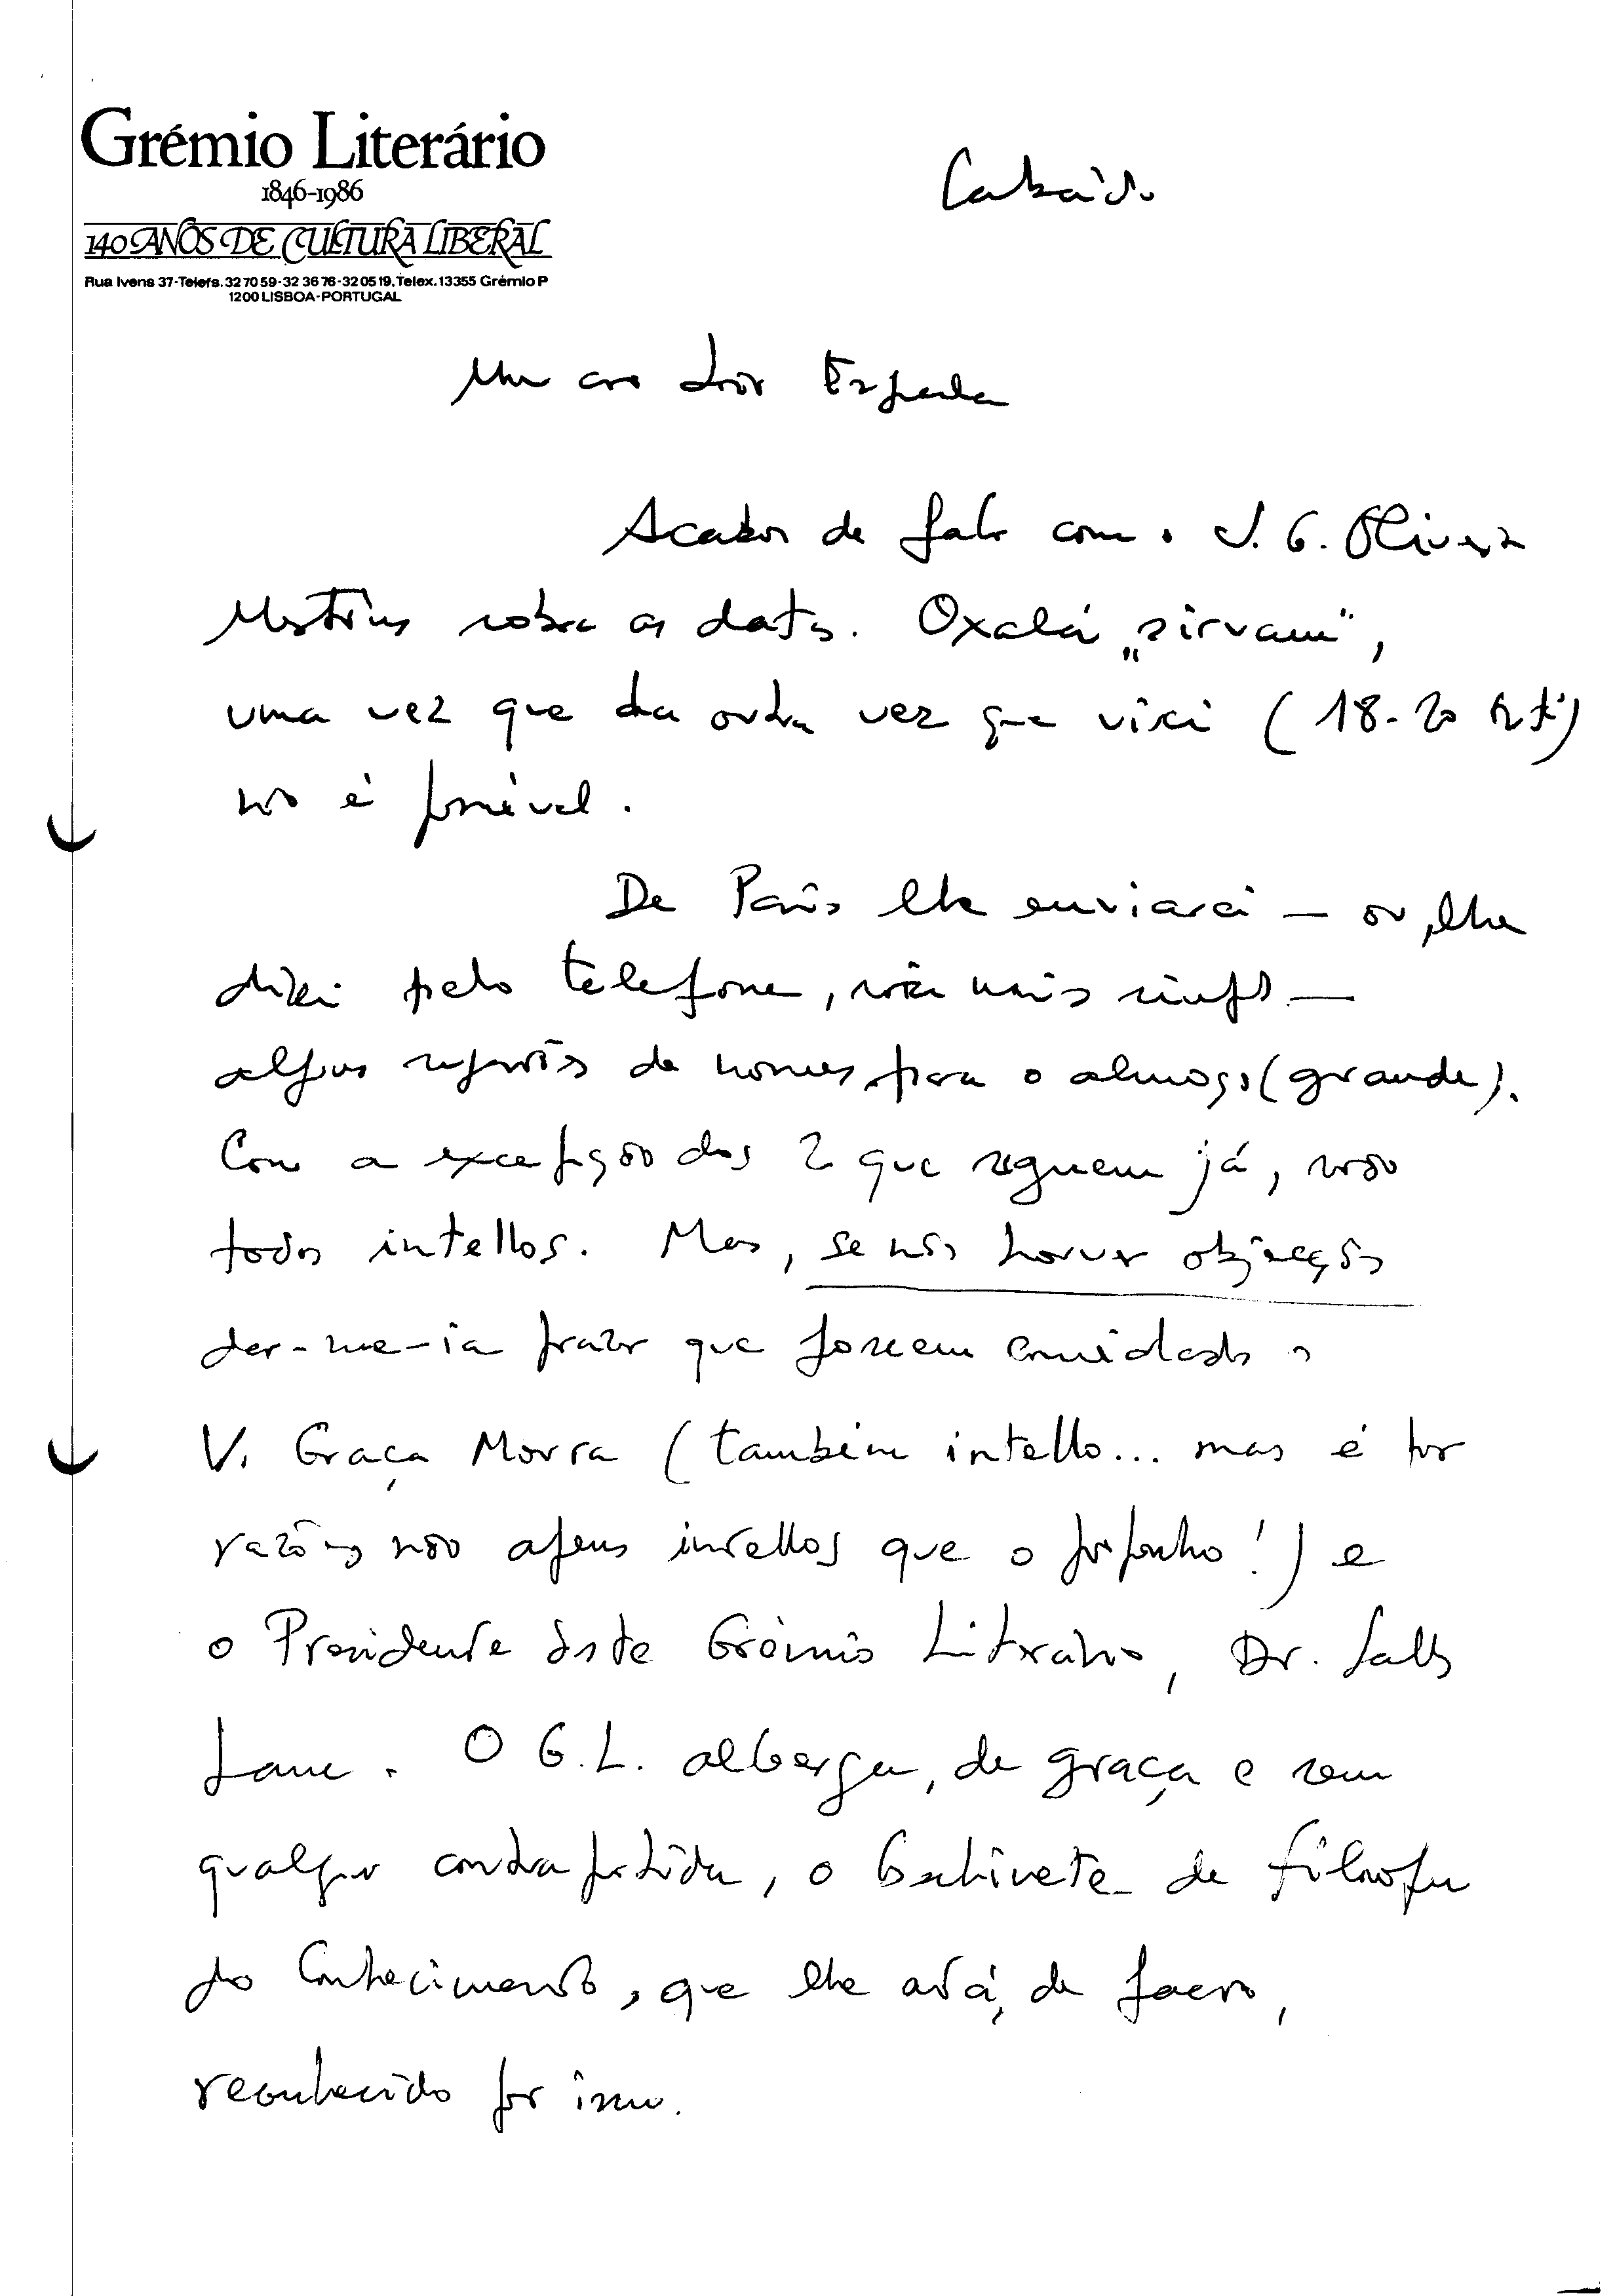 Grémio Literário
1846-1986
140 ANOS DE CULTURA LIBERAL
Rua Ivens 37-Telefs. 32 70 59-32 36 76-32 05 19. Telex. 13355 Grémio P
1200 LISBOA-PORTUGAL
Meu caro João Espada
Acabo de falar com o J. G. Oliveira
Martins sobre as datas. Oxalá „sirvam",
uma vez que da outra vez que virei (18-20
não é possível.
De Paris lhe enviarei — ou lhe
direi pelo telefone, será mais simples —
algumas sugestões de nomes para o almoço (grande).
Com a excepção dos 2 que seguem já, serão
todos intellos. Mas, se não houver objecção
dar-me-ia prazer que fossem convidados o
V. Graça Moura (também intello... mas é por
razões não apenas intellos que o proponho!) e
o Presidente deste Grémio Literário, Dr. Salles
Lane. O G.L. alberga, de graça e sem
qualquer contrapartida, o Gabinete de Filosofia
do Conhecimento, que lhe está, de facto,
reconhecido por isso.